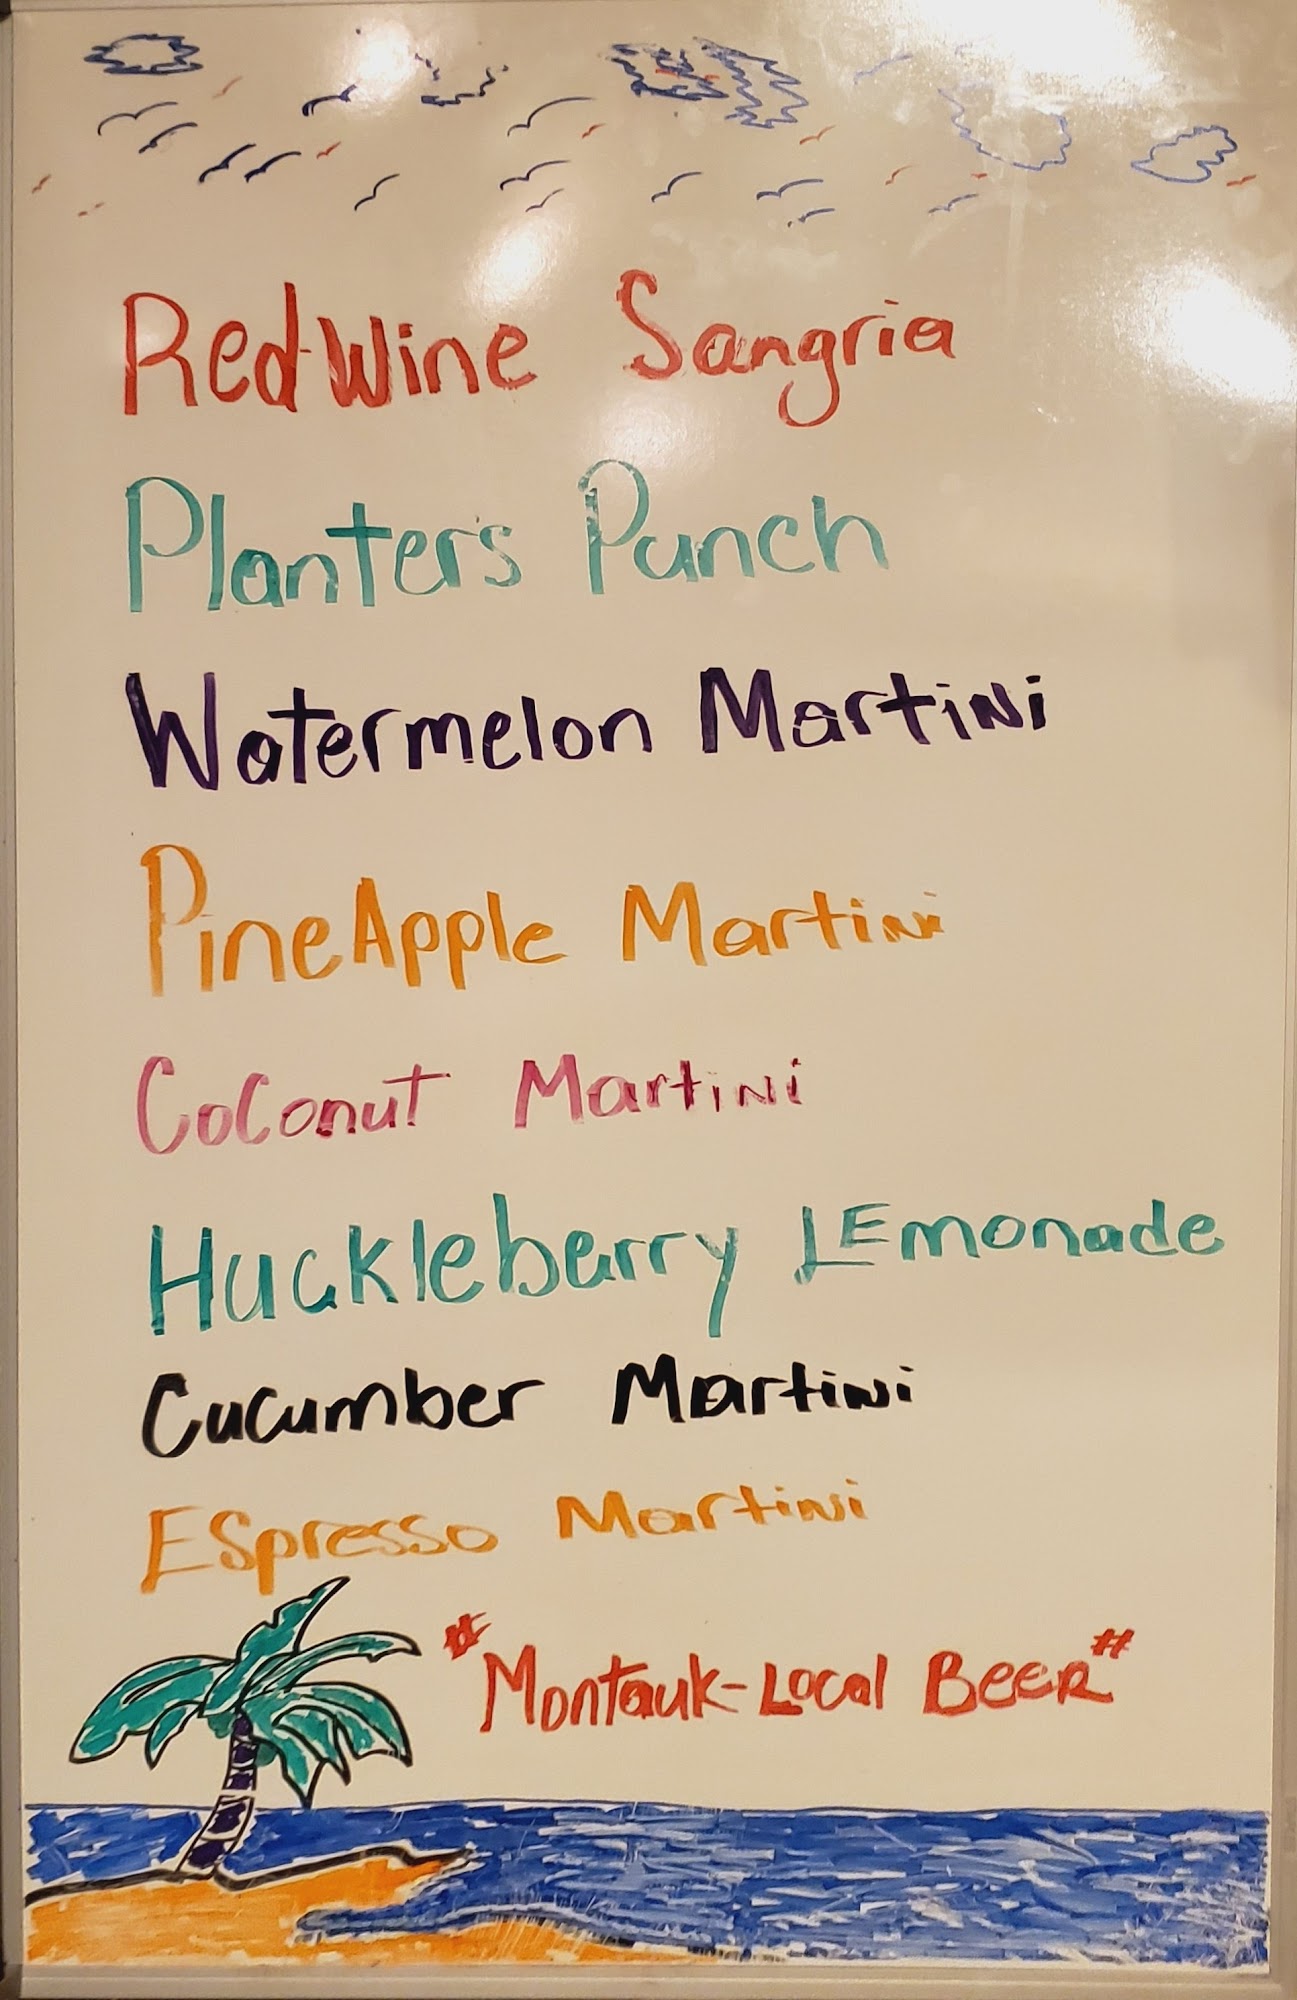 Red Wine Sangria
Planter's Punch
Watermelon Martini
PineApple Martini
CoConut Martini
Huckleberry LEmonade
Cucumber Martini
ESpresso Martini
"Montauk-Local BeeR"